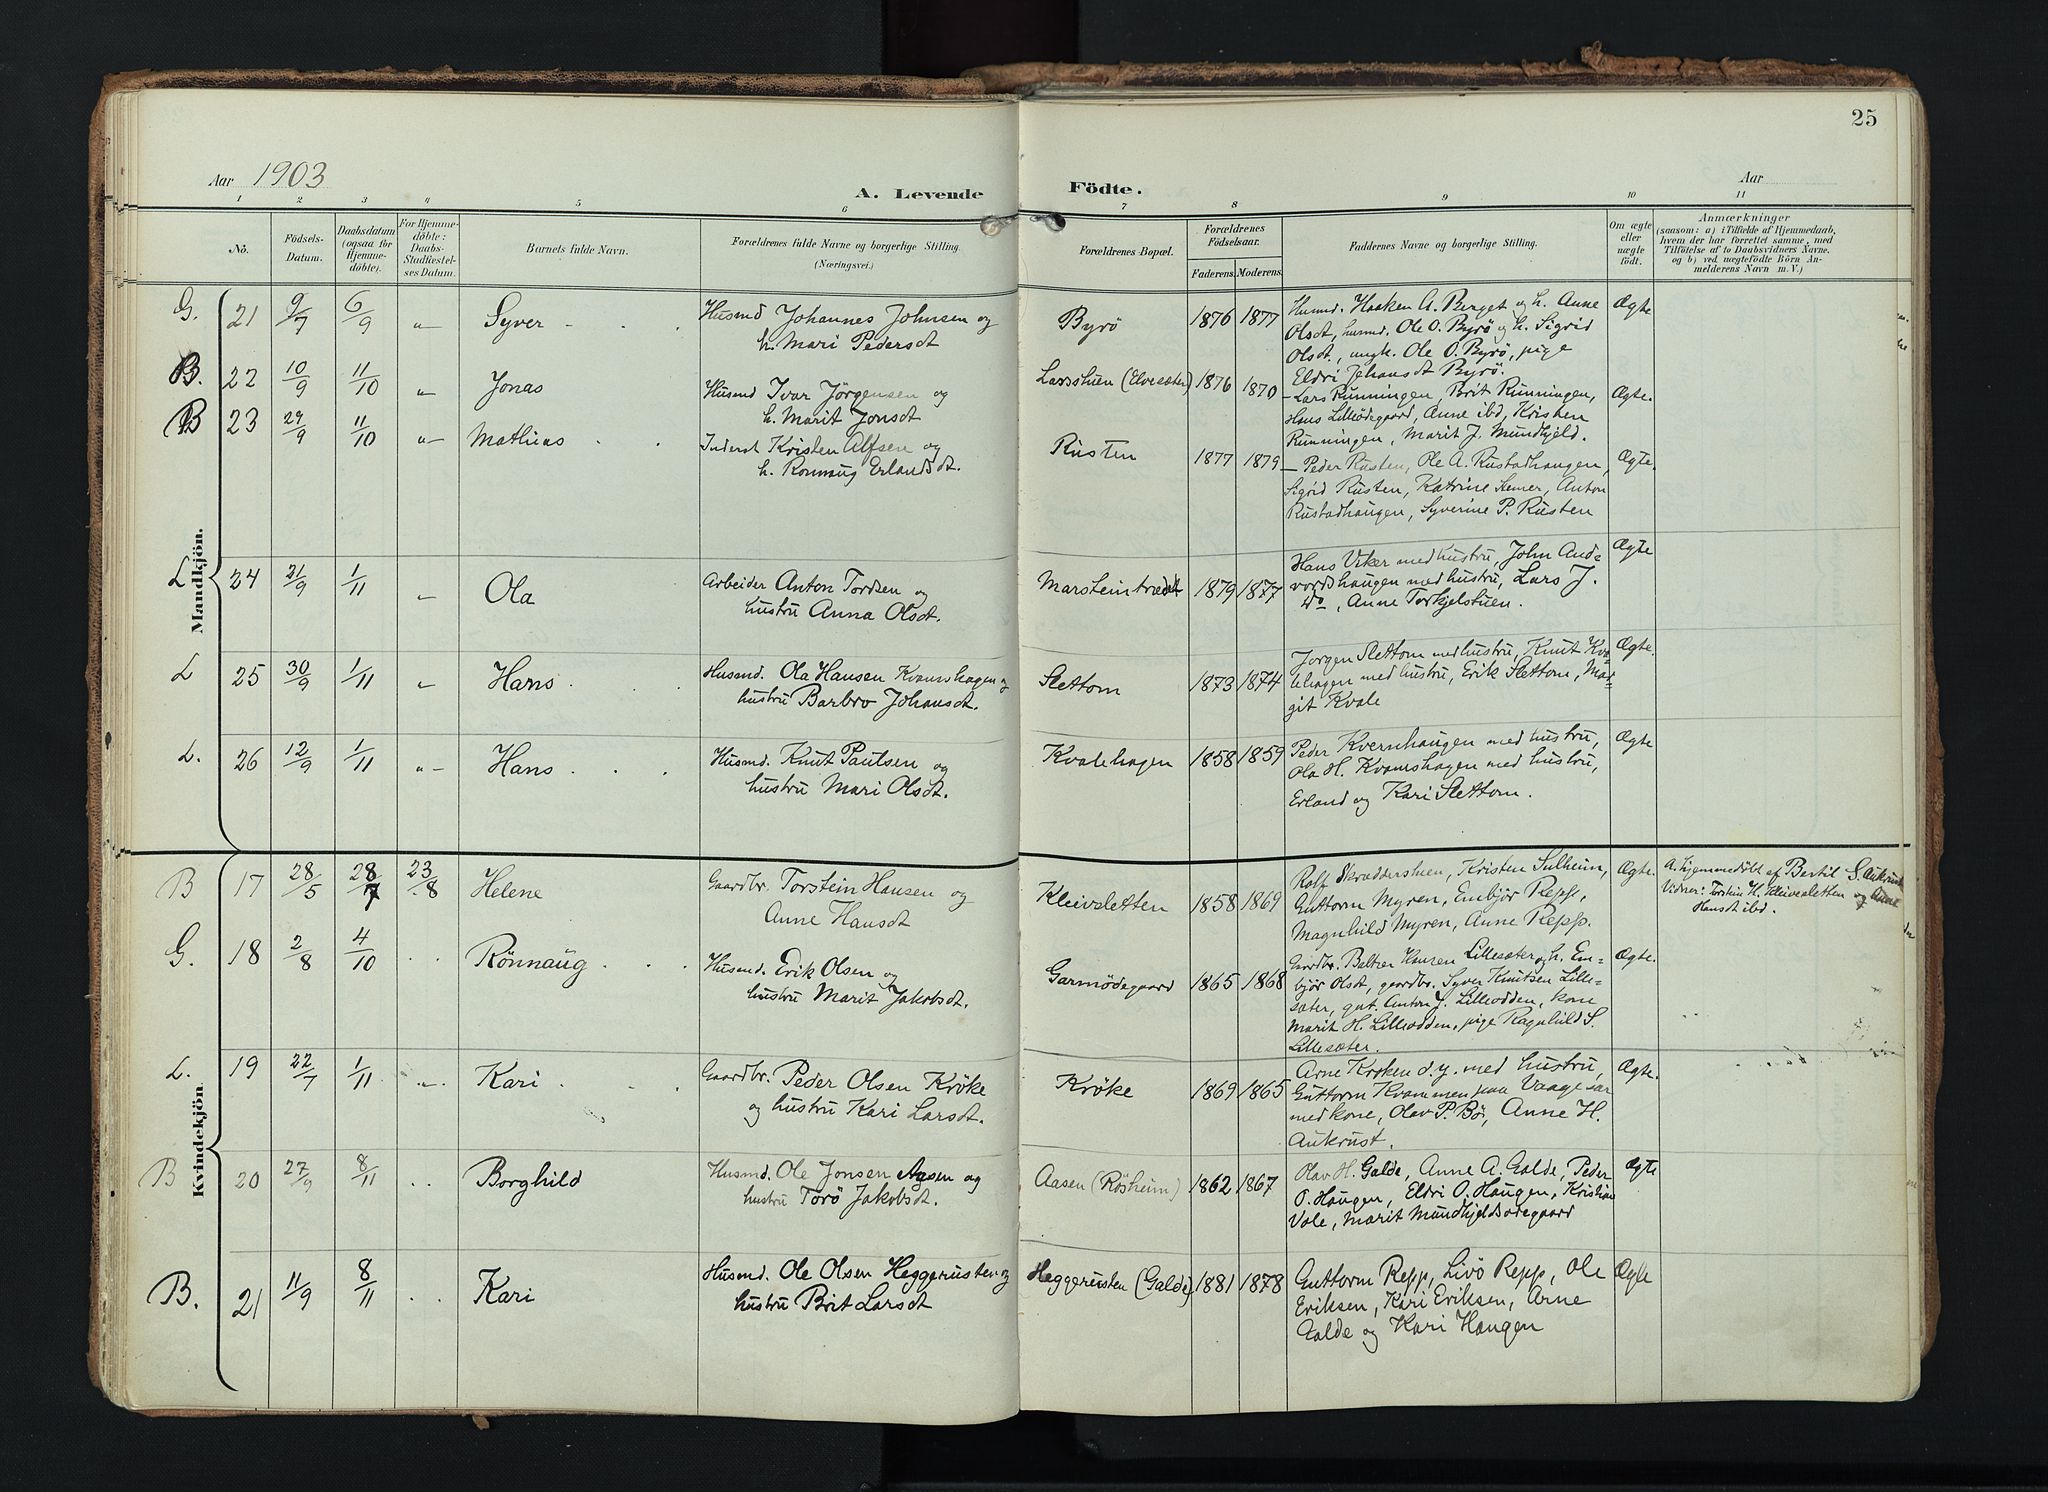 25
Aar 1903
A. Levende
Födte.
Aar
1 2 3 4 5 6 7 8 9 10 11
No.
Födsels-Datum.
Daabsdatum (ogsaa for Hjemme-döbte).
For Hjemme-döbte: Daabs-Stadfæstel-ses Datum.
Barnets fulde Navn.
Forældrenes fulde Navne og borgerlige Stilling. (Næringsvei.)
Forældrenes Bopæl.
Forældrenes Födselsaar.
Faderens. Moderens.
Faddernes Navne og borgerlige Stilling.
Om ægte eller uægte födt.
Anmærkninger
(saasom: a) i Tilfælde af Hjemmedaab, hvem der har forrettet samme, med Tilföielse af to Daabsvidners Navne, og b) ved uægtefödte Börn An-melderens Navn m. V.)
Mandkjön.
G. 21 9/7 6/9 „ Syver Husmd Johannes Johnsen og
h. Mari Pedersdt
Byrö 1876 1877
Husmd. Haaken A. Berget og h. Anne
Olsdt, husmd. Ole O. Byrö og h. Sigrid
Olsdt., ungk. Ole O. Byrö, pige
Eldri Johansdt Byrö.
Ægte
B. 22 10/9 11/10 „ Jonas Husmd Ivar Jörgensen og
h. Marit Jonsdt
Larsstuen (Elvesæter) 1876 1870
Lars Runningen, Brit Runningen,
Hans Lilleödegaard, Anne ibd, Kristen
Runningen, Marit J. Mundhjeld.
Ægte.
B 23 29/9 11/10 „ Mathias Inderst Kristen Alfsen og
h. Ronnaug Erlandsdt.
Rusten 1877 1879
Peder Rusten, Ole A. Rustadhaugen,
Sigrid Rusten, Katrine Kemer, Anton
Rustadhaugen, Syverine P. Rusten
Ægte.
L 24 21/9 1/11 „ Ola Arbeider Anton Tordsen og
hustru Anna Olsdt.
Marsteintrædet 1879 1877
Hans Viker med hustru, John And=
vordshaugen med hustru, Lars J.
do, Anne Torkjelstuen.
Ægte
L 25 30/9 1/11 „ Hans Husmd. Ola Hansen Kvamshagen og
hustru Barbro Johansdt.
Slettom 1873 1874
Jorgen Slettom med hustru, Knut Kva=
lehagen med hustru, Erik Slettom, Mar=
git Kvale
Ægte.
L. 26 12/9 1/11 „ Hans Husmd. Knut Paulsen og
hustru Mari Olsdt.
Kvalehagen 1858 1859
Peder Kvernhaugen med hustru,
Ola H. Kvamshagen med hustru,
Erland og Kari Slettom.
Ægte
Kvindekjön
B 17 28/5 28/7 23/8 Helene Gaardbr. Torstein Hansen og
Anne Hansdt
Kleivsletten 1858 1869
Rolf Skræddershien, Kristen Sulheim,
Guttorm Myren, Embjör Repp,
Magnhild Myren, Anne Repp.
Ægte.
a. Hjemmedöbt af Bertil S. Aukrust
Vidner: Torstein H. Kleivesletten og Anne
Hansdt ibd.
G. 18 2/8 4/10 Rönnaug Husmd. Erik Olsen og
hustru Marit Jakobsdt.
Garmödegaard 1865 1868
Gaardbr. Baltzer Hansen Lillesæter og h. Em=
björ Olsdt, gaardbr. Syver Knutsen Lille=
sæter, gut. Anton J. Lilleodden, kone
Marit H. Lilleodden, pige Ragnhild S.
Lillesæter.
Ægte.
L. 19 22/7 1/11 „ Kari Gaardbr. Peder Olsen Kröke
og hustru Kari Larsdt.
Kröke 1869 1865
Arne Kroken d. y. med hustru,
Guttorm Kvammen paa Vaagesar
med kone, Olav P. Bö, Anne H.
Aukrust.
Ægte.
B 20 27/9 8/11 Borghild Husmd. Ole Jonsen Aasen og
hustru Torö Jakobsdt.
Aasen (Rösheim) 1862 1867
Olav H. Galde, Anne A. Galde, Peder
O. Haugen, Eldri O. Haugen, Kristian
Vole, Marit Mundhjeldsödegaard
Ægte
B. 21 11/9 8/11 Kari Husmd. Ole Olsen Heggerusten og
hustru Brit Larsdt
Heggerusten (Galde) 1881 1878
Guttorm Repp, Livö Repp, Ole
Eriksen, Kari Eriksen, Arne
Galde og Kari Haugen
Ægte